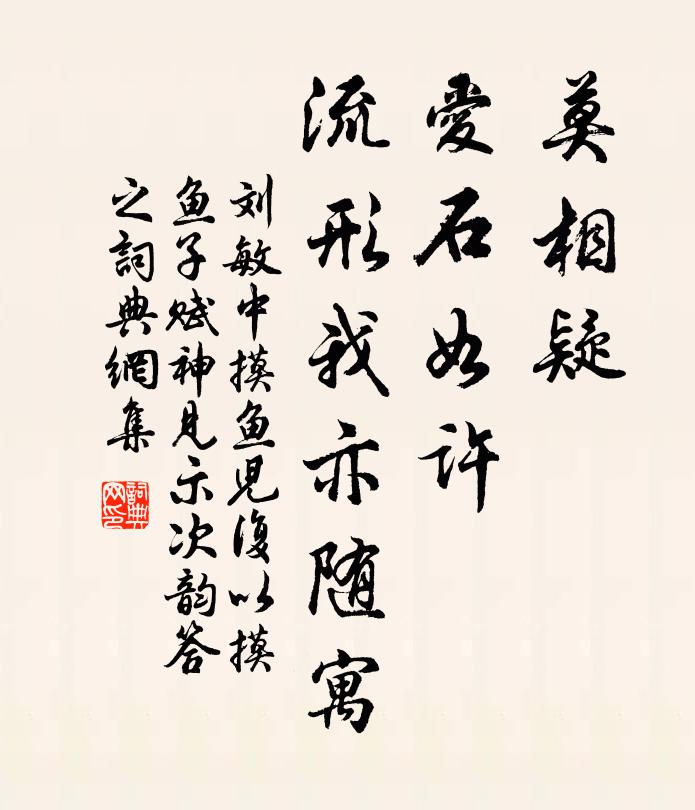 莫相疑
愛石如許
流形我亦随寓
刘敏中摸鱼児復以摸
鱼子赋神見示次韵答
之詞典網集
詞典网印